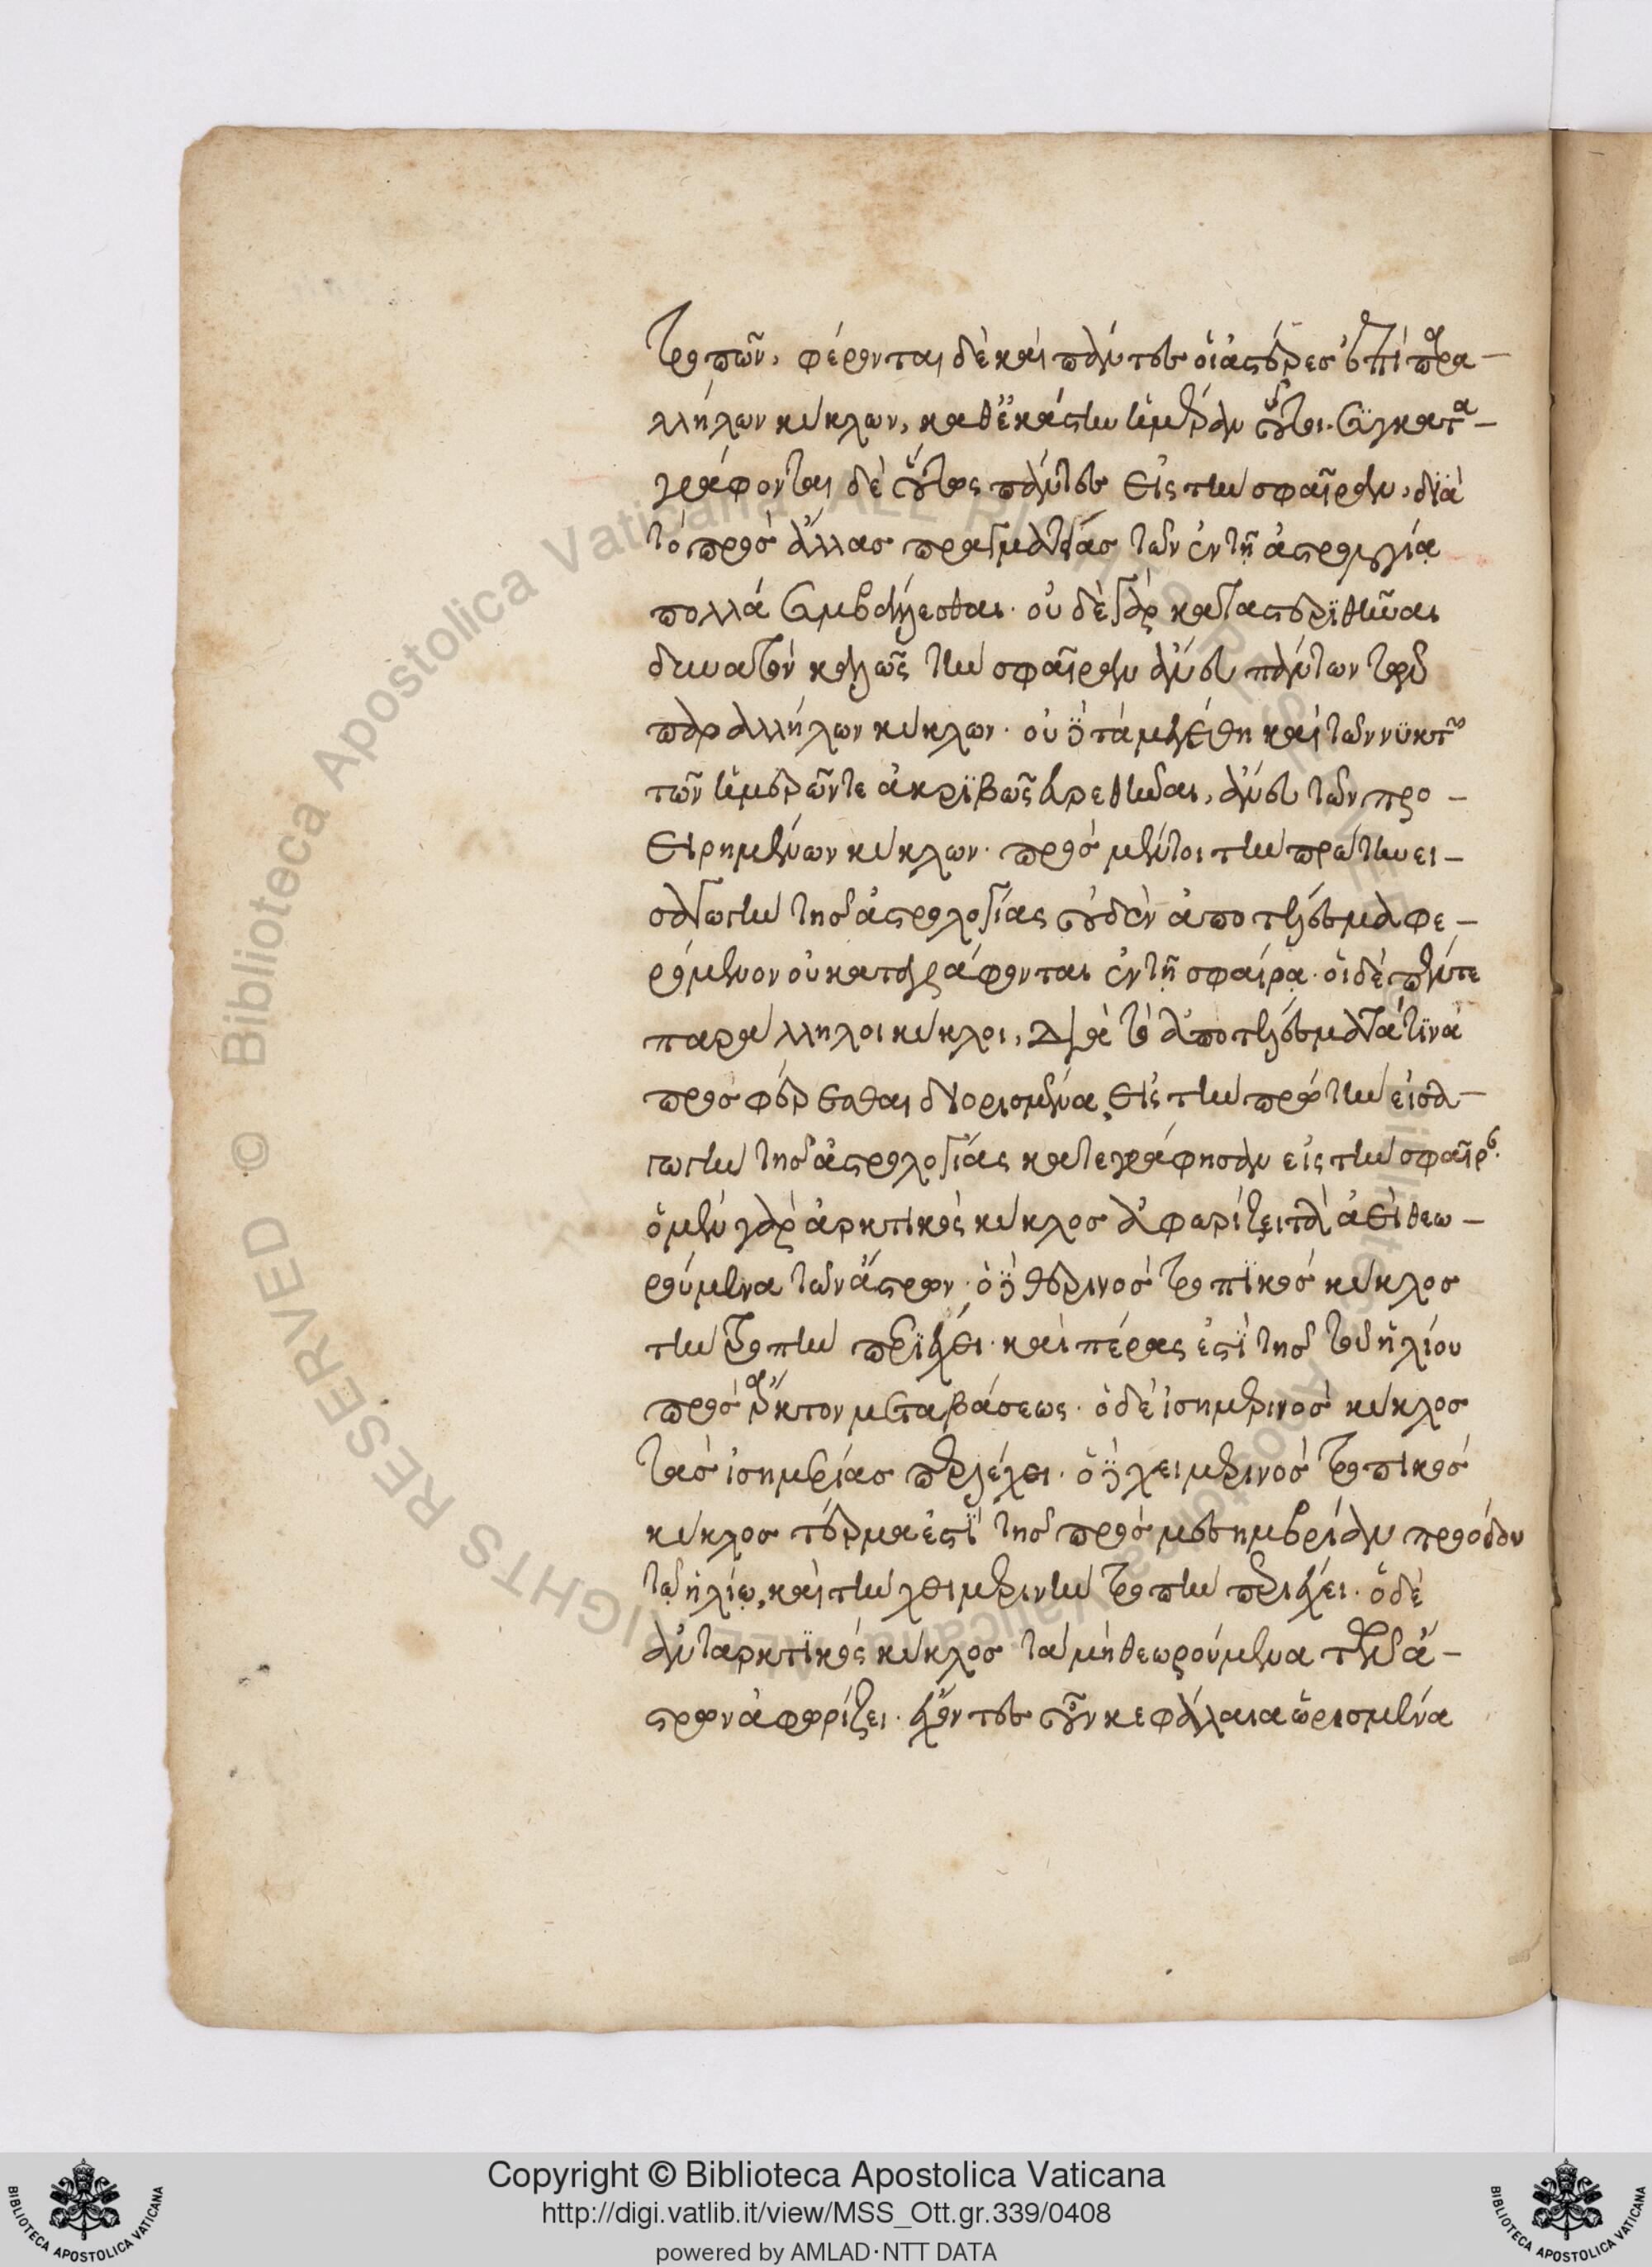 τροπῶν, φέρονται δὲ καὶ πάντες οἱ ἀστέρες ἐπὶ παρα-
λλήλων κύκλων, καθ' ἑκάστην ἡμέραν οὗτοι. συγκατα-
γράφονται δὲ οὗτος πάντες εἰς τὴν σφαῖραν, διὰ
τὸ πρὸς ἄλλας πραγματείας τῶν ἐν τῇ ἀστρολογίᾳ
πολλὰ συμβάλλεσθαι. οὐδὲ γὰρ καταστερισθῆναι
δυνατὸν καλῶς τὴν σφαῖραν ἄνευ πάντων τῶν
παραλλήλων κύκλων. οὐδὲ τὰ μεγέθη καὶ τῶν νυκτῶν
τῶν ἡμερῶν τε ἀκριβῶς εὑρεθῆναι, ἄνευ τῶν προ-
ειρημένων κύκλων. πρὸς μέντοι τὴν πρώτην ει-
σαγωγὴν τῆς ἀστρολογίας οὐδὲν ἀποτέλεσμα φε-
ρόμενον οὐ καταγράφονται ἐν τῇ σφαίρᾳ. οἱ δὲ πέντε
παράλληλοι κύκλοι, διὰ τὸ ἀποτελέσματα τινὰ
προσφέρεσθαι διορισμένα, εἰς τὴν πρώτην εἰσα-
γωγὴν τῆς ἀστρολογίας κατεγράφησαν εἰς τὴν σφαῖρ.
ὁ μὲν γὰρ ἀρκτικὸς κύκλος ἀφορίζει τὰ ἀεὶ θεω-
ρούμενα τῶν ἄστρων. ὁ δὲ θερινὸς τροπικὸς κύκλος
τὴν τροπὴν περιέχει. καὶ πέρας ἐστὶ τῆς τοῦ ἡλίου
πρὸς ἄρκτον μεταβάσεως. ὁ δὲ ἰσημερινὸς κύκλος
τὰς ἰσημερίας περιέχει. ὁ δὲ χειμερινὸς τροπικὸς
κύκλος τέρμα ἐστὶ τῆς πρὸς μεσημβρίαν προόδου
τῷ ἡλίῳ, καὶ τὴν χειμερινὴν τροπὴν περιέχει. ὁ δὲ
ἀνταρκτικὸς κύκλος τὰ μὴ θεωρούμενα τῶν ἄ-
στρων ἀφορίζει. ἔχοντες οὖν κεφάλαια ὡρισμένα
Copyright © Biblioteca Apostolica Vaticana
http://digi.vatlib.it/view/MSS_Ott.gr.339/0408
powered by AMLAD·NTT DATA
BIBLIOTECA APOSTOLICA VATICANA
BIBLIOTECA APOSTOLICA VATICANA
© Biblioteca Apostolica Vaticana ALL RIGHTS RESERVED
© Biblioteca Apostolica Vaticana ALL RIGHTS RESERVED